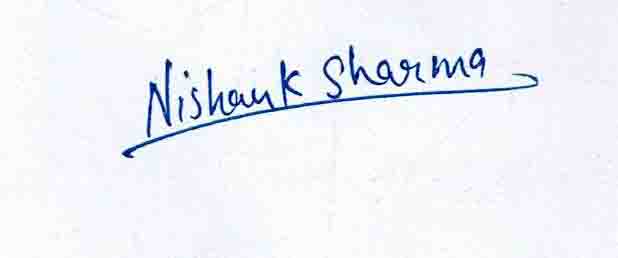 Nishank Sharma